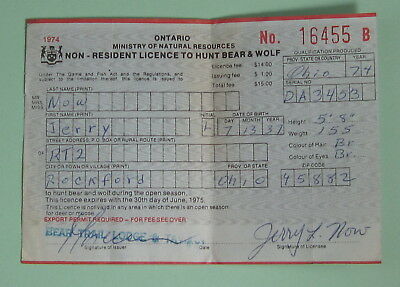 1974
ONTARIO
MINISTRY OF NATURAL RESOURCES
NON - RESIDENT LICENCE TO HUNT BEAR & WOLF
No. 16455 B
Under The Game and Fish Act and the Regulations, and
subject to the limitations thereof, this licence is issued to
Licence Fee $14.00
Issuing Fee $1.00
Total Fee $15.00
QUALIFICATION PRODUCED
PROV. STATE OR COUNTRY YEAR
Ohio 74
SERIAL
2A3453
LAST NAME (PRINT)
MR. MRS. MISS
Now
FIRST NAME (PRINT) INITIAL DATE OF BIRTH
Jerry L DAY 7 MONTH 13 YEAR 37
Height 5' 8"
Weight 155
Colour of Hair Br
Colour of Eyes Br.
STREET ADDRESS, P.O. BOX OR RURAL ROUTE (PRINT)
RT2
CITY OR TOWN OR VILLAGE (PRINT) PROV. OR STATE ZIP CODE
Rockford Ohio 45882
to hunt bear and wolf during the open season.
This licence expires with the 30th day of June, 1975.
This Licence is not valid during an open season
for deer or moose.
EXPORT PERMIT REQUIRED - FOR FEE SEE OVER
BEAR TRAIL LODGE
Signature of Issuer
Jerry L. Now
Signature of Licensee